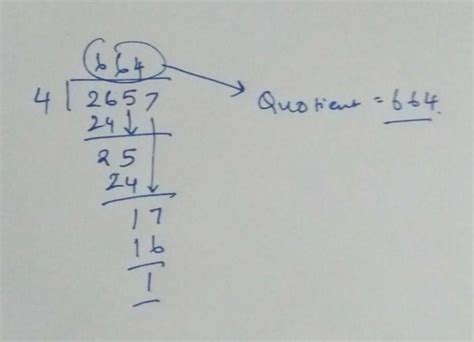 664
4 2657
Quotient = 664.
24
25
24
17
16
1